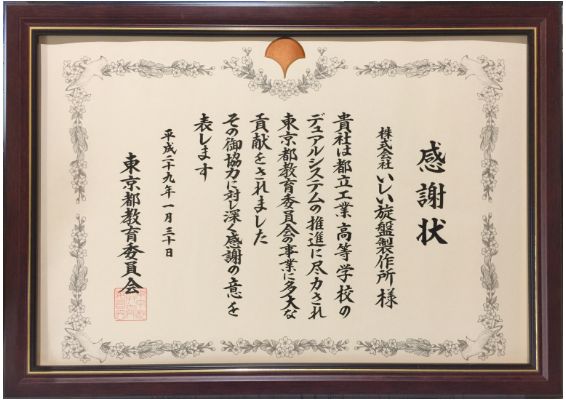 感謝状
株式会社 いしい旋盤製作所 様
貴社は都立工業高等学校の
デュアルシステムの推進に尽力され
東京都教育委員会の事業に多大な
貢献をされました
その御協力に対し深く感謝の意を
表します
平成二十九年一月三十日
東京都教育委員会